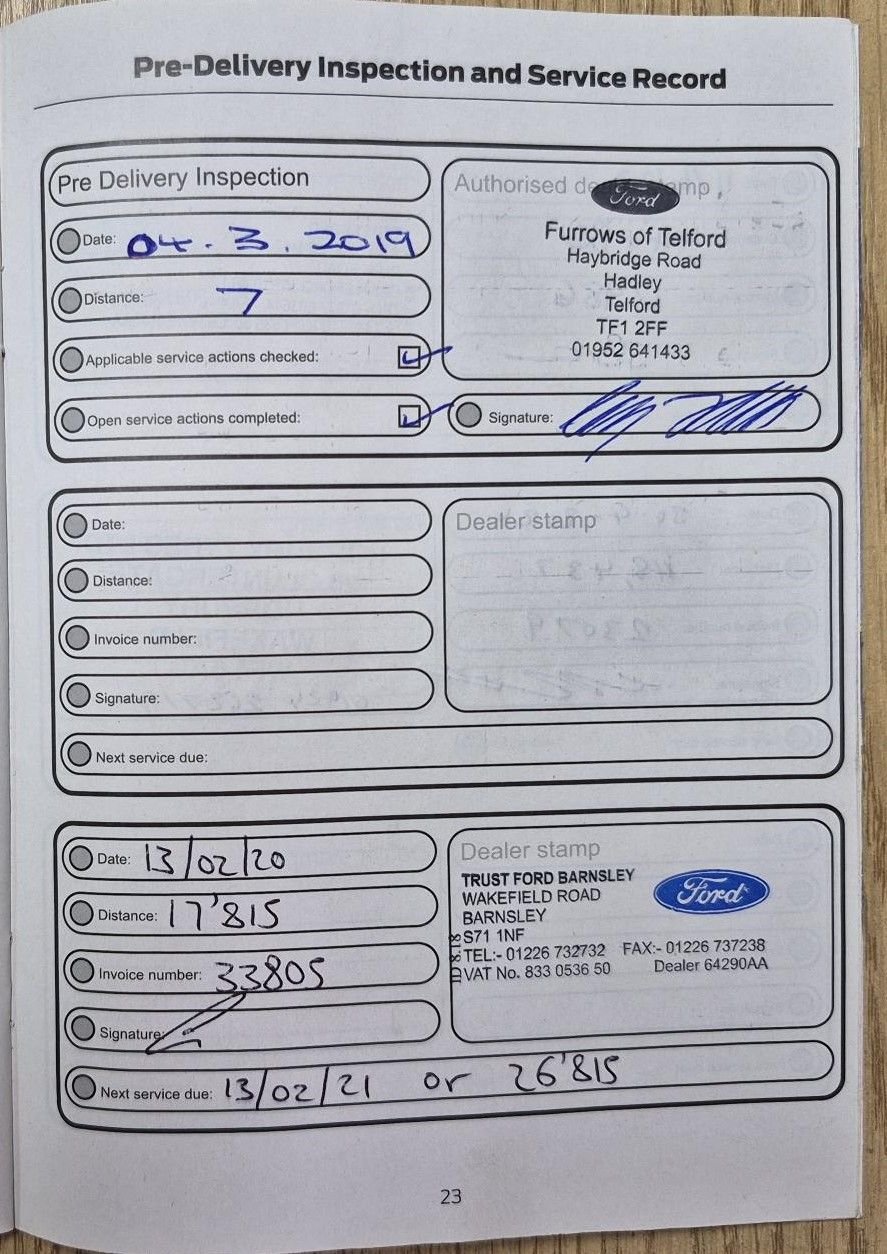 Pre-Delivery Inspection and Service Record
Pre Delivery Inspection
Date: 04.3.2019
Distance: 7
Applicable service actions checked:
Open service actions completed:
Authorised
Ford
Furrows of Telford
Haybridge Road
Hadley
Telford
TF1 2FF
01952 641433
Signature:
Date:
Distance:
Invoice number:
Signature:
Next service due:
Dealer stamp
Date: 13/02/20
Distance: 17'815
Invoice number: 33805
Signature:
Dealer stamp
TRUST FORD BARNSLEY
WAKEFIELD ROAD
BARNSLEY
S71 1NF
TEL:- 01226 732732 FAX:- 01226 737238
VAT No. 833 0536 50 Dealer 64290AA
Ford
Next service due: 13/02/21 or 26'815
23